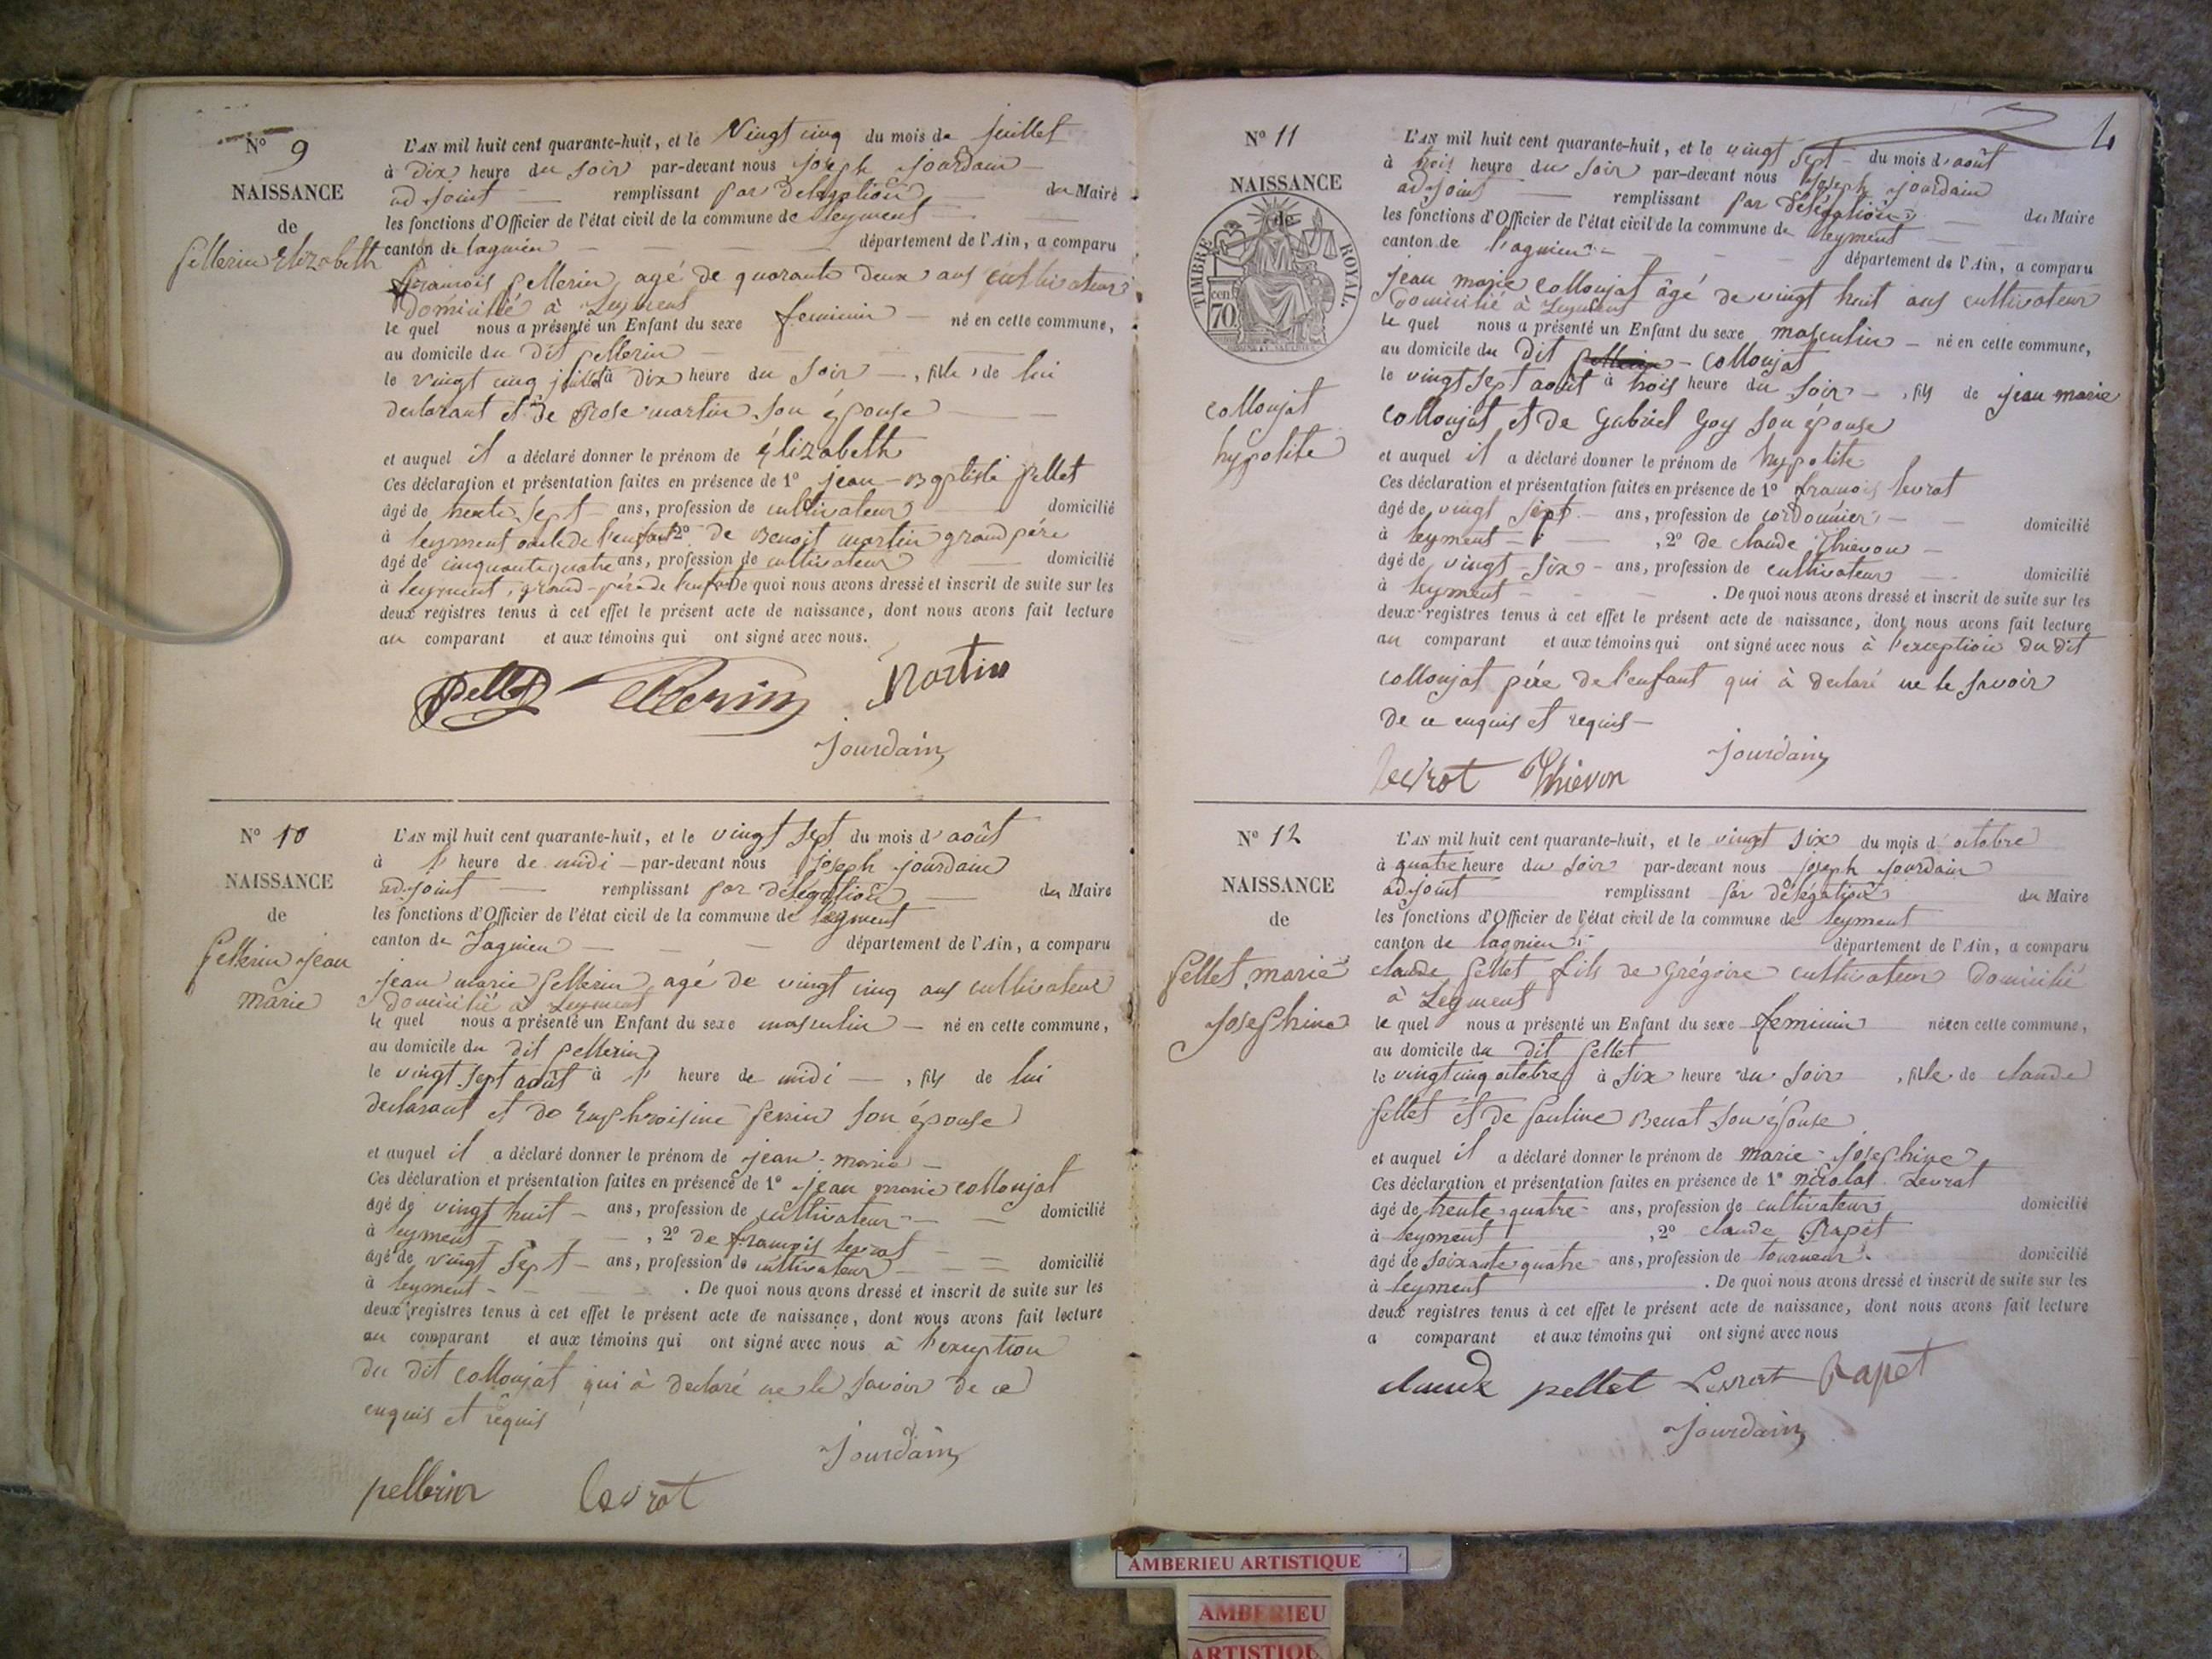 N° 9
NAISSANCE
de
pellerin Elizabeth
L'AN mil huit cent quarante-huit, et le Vingt cinq du mois de juillet
à dix heure du soir par-devant nous joseph jourdain
adjoint remplissant par délégation du Maire
les fonctions d'Officier de l'état civil de la commune de leyment
canton de lagnieu département de l'Ain, a comparu
francois pellerin agé de quarante deux ans cultivateur
domicilié à Leyment
le quel nous a présenté un Enfant du sexe feminin né en cette commune,
au domicile du dit pellerin
le vingt cinq juillet à dix heure du soir, fille de lui
declarant et de Rose martin son épouse
et auquel il a déclaré donner le prénom de élizabeth
Ces déclaration et présentation faites en présence de 1° jean-Baptiste pellet
âgé de trente sept ans, profession de cultivateur domicilié
à leyment oncle de l'enfant 2° de Benoit martin grand père
âgé de cinquante quatre ans, profession de cultivateur domicilié
à leyment, grand-père de l'enfant De quoi nous avons dressé et inscrit de suite sur les
deux registres tenus à cet effet le présent acte de naissance, dont nous avons fait lecture
au comparant et aux témoins qui ont signé avec nous.
Pellet Pellerin Martin
Jourdain
N° 10
NAISSANCE
de
pellerin jean
marie
L'AN mil huit cent quarante-huit, et le vingt sept du mois d'août
à 1 heure de midi par-devant nous joseph jourdain
adjoint remplissant par délégation du Maire
les fonctions d'Officier de l'état civil de la commune de leyment
canton de Lagnieu département de l'Ain, a comparu
jean marie pellerin agé de vingt cinq ans cultivateur
domicilié à Leyment
le quel nous a présenté un Enfant du sexe masculin né en cette commune,
au domicile du dit pellerin
le vingt sept août à 1 heure de midi, fils de lui
declarant et de Euphroisine perrin son épouse
et auquel il a déclaré donner le prénom de jean-marie
Ces déclaration et présentation faites en présence de 1° jean marie collonjat
âgé de vingt huit ans, profession de cultivateur domicilié
à leyment, 2° de francois levrat
âgé de vingt sept ans, profession de cultivateur domicilié
à leyment. De quoi nous avons dressé et inscrit de suite sur les
deux registres tenus à cet effet le présent acte de naissance, dont nous avons fait lecture
au comparant et aux témoins qui ont signé avec nous à l'exception
du dit collonjat qui à declaré ne le savoir de ce
enquis et requis
Jourdain
pellerin levrat
4
N° 11
NAISSANCE
de
TIMBRE ROYAL
70 cent
collonjat
hypolite
L'AN mil huit cent quarante-huit, et le vingt sept du mois d'août
à trois heure du soir par-devant nous Joseph jourdain
adjoint remplissant par délégation du Maire
les fonctions d'Officier de l'état civil de la commune de leyment
canton de l'agnieu département de l'Ain, a comparu
jean marie collonjat âgé de vingt huit ans cultivateur
domicilié à Leyment
le quel nous a présenté un Enfant du sexe masculin né en cette commune,
au domicile du dit pellerin collonjat
le vingt sept août à trois heure du soir, fils de jean marie
collonjat et de Gabriel Goy son épouse
et auquel il a déclaré donner le prénom de hypolite
Ces déclaration et présentation faites en présence de 1° francois levrat
âgé de vingt sept ans, profession de cordonnier domicilié
à leyment, 2° de claude thievon
âgé de vingt six ans, profession de cultivateur domicilié
à leyment. De quoi nous avons dressé et inscrit de suite sur les
deux registres tenus à cet effet le présent acte de naissance, dont nous avons fait lecture
au comparant et aux témoins qui ont signé avec nous à l'exception du dit
collonjat père de l'enfant qui à declaré ne le savoir
de ce enquis et requis
levrat Thievon Jourdain
N° 12
NAISSANCE
de
pellet marie
Josephine
L'AN mil huit cent quarante-huit, et le vingt six du mois d'octobre
à quatre heure du soir par-devant nous joseph jourdain
adjoint remplissant par délégation du Maire
les fonctions d'Officier de l'état civil de la commune de leyment
canton de lagnieu département de l'Ain, a comparu
claude pellet fils de Grégoire cultivateur domicilié
à Leyment
le quel nous a présenté un Enfant du sexe feminin née en cette commune,
au domicile du dit pellet
le vingt cinq octobre à six heure du soir, fille de claude
pellet et de pauline Benat son épouse
et auquel il a déclaré donner le prénom de marie-josephine
Ces déclaration et présentation faites en présence de 1° nicolas Levrat
âgé de trente quatre ans, profession de cultivateur domicilié
à leyment, 2° claude Rapet
âgé de soixante quatre ans, profession de tourneur domicilié
à leyment. De quoi nous avons dressé et inscrit de suite sur les
deux registres tenus à cet effet le présent acte de naissance, dont nous avons fait lecture
a comparant et aux témoins qui ont signé avec nous
claude pellet Levrat Rapet
Jourdain
AMBERIEU ARTISTIQUE
AMBERIEU
ARTISTIQU